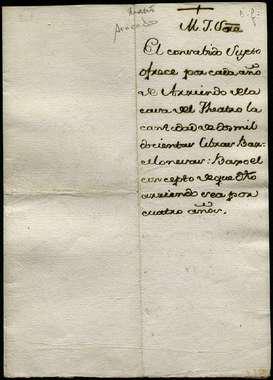 M. I. Sor.
El conrabido Sujeto
ofrece por cada año
de Arriendo de la
casa del Theatro la
cantidad de dos mil
docientas Libras Bar-
selonesas: Bajo el
concepto de que dho
arriendo sea por
cuatro años.